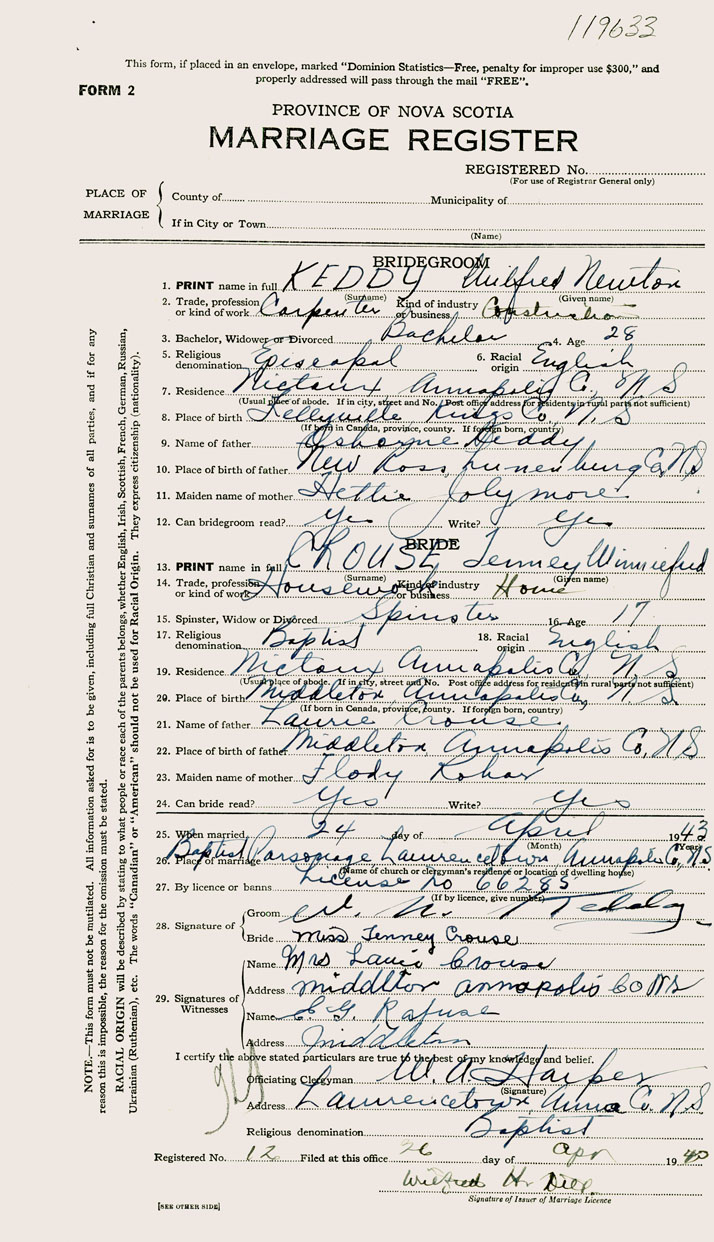 119633
This form, if placed in an envelope, marked “Dominion Statistics—Free, penalty for improper use $300,” and
properly addressed will pass through the mail “FREE”.
FORM 2
PROVINCE OF NOVA SCOTIA
MARRIAGE REGISTER
REGISTERED No.
(For use of Registrar General only)
PLACE OF MARRIAGE
County of Municipality of
If in City or Town
(Name)
BRIDEGROOM
1. PRINT name in full KEDDY Wilfred Newton
(Surname) (Given name)
2. Trade, profession or kind of work Carpenter Kind of industry or business Construction
3. Bachelor, Widower or Divorced Bachelor 4. Age 28
5. Religious denomination Episcopal 6. Racial origin English
7. Residence Nictaux Annapolis Co., N S
(Usual place of abode. If in city, street and No. Post office address for residents in rural parts not sufficient)
8. Place of birth Kings Co, N, S
(If born in Canada, province, county. If foreign born, country)
9. Name of father Osborne Keddy
10. Place of birth of father New Ross, Lunenburg Co, N S
11. Maiden name of mother Hettie Jolymore
12. Can bridegroom read? Yes Write? Yes
BRIDE
13. PRINT name in full CROUSE Tenney Winniefred
(Surname) (Given name)
14. Trade, profession or kind of work Housework Kind of industry or business Home
15. Spinster, Widow or Divorced Spinster 16. Age 17
17. Religious denomination Baptist 18. Racial origin English
19. Residence Nictaux Annapolis Co, N, S
(Usual place of abode. If in city, street and No. Post office address for residents in rural parts not sufficient)
20. Place of birth Middleton, Annapolis Co, N S
(If born in Canada, province, county. If foreign born, country)
21. Name of father Laurie Crouse
22. Place of birth of father Middleton Annapolis Co, N S
23. Maiden name of mother Flody
24. Can bride read? Yes Write? Yes
25. When married 24 day of April 1943
(Month) (Year)
26. Place of marriage Baptist Parsonage Lawrencetown Annapolis Co, N.S.
(Name of church or clergyman's residence or location of dwelling house)
27. By licence or banns License no 66285
(If by licence, give number)
28. Signature of
Groom W. N. Keddy
Bride Miss Tenney Crouse
29. Signatures of Witnesses
Name Mrs Crouse
Address Middleton annapolis Co NS
Name Rafuse
Address Middleton
I certify the above stated particulars are true to the best of my knowledge and belief.
Officiating Clergyman W. A. Harper
(Signature)
Address Lawrencetown, Anna Co. N S
Religious denomination Baptist
Registered No. 12 Filed at this office 26 day of Apr 19
Wilfred H.
Signature of Issuer of Marriage Licence
[SEE OTHER SIDE]
NOTE.—This form must not be mutilated. All information asked for is to be given, including full Christian and surnames of all parties, and if for any
reason this is impossible, the reason for the omission must be stated.
RACIAL ORIGIN will be described by stating to what people or race each of the parents belongs, whether English, Irish, Scottish, French, German, Russian,
Ukrainian (Ruthenian), etc. The words “Canadian” or “American” should not be used for Racial Origin. They express citizenship (nationality).